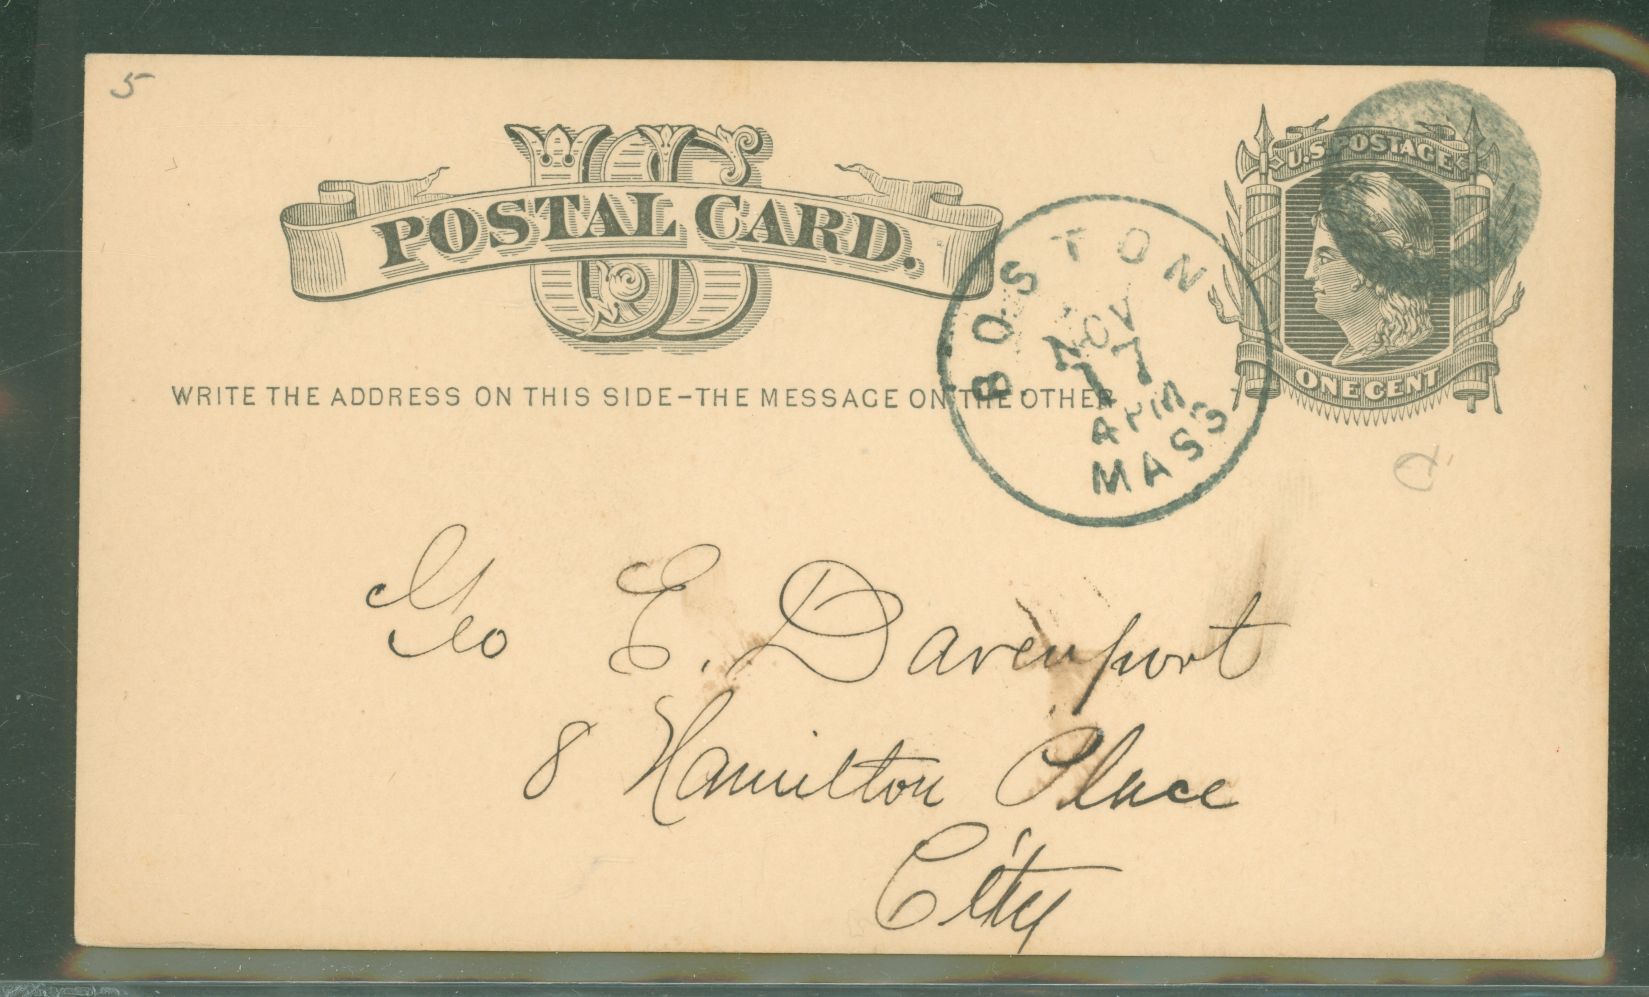 5
US
POSTAL CARD.
U.S. POSTAGE
ONE CENT
WRITE THE ADDRESS ON THIS SIDE-THE MESSAGE ON THE OTHER
BOSTON
NOV
17
4 PM
MASS
Geo E. Davenport
8 Hamilton Place
City